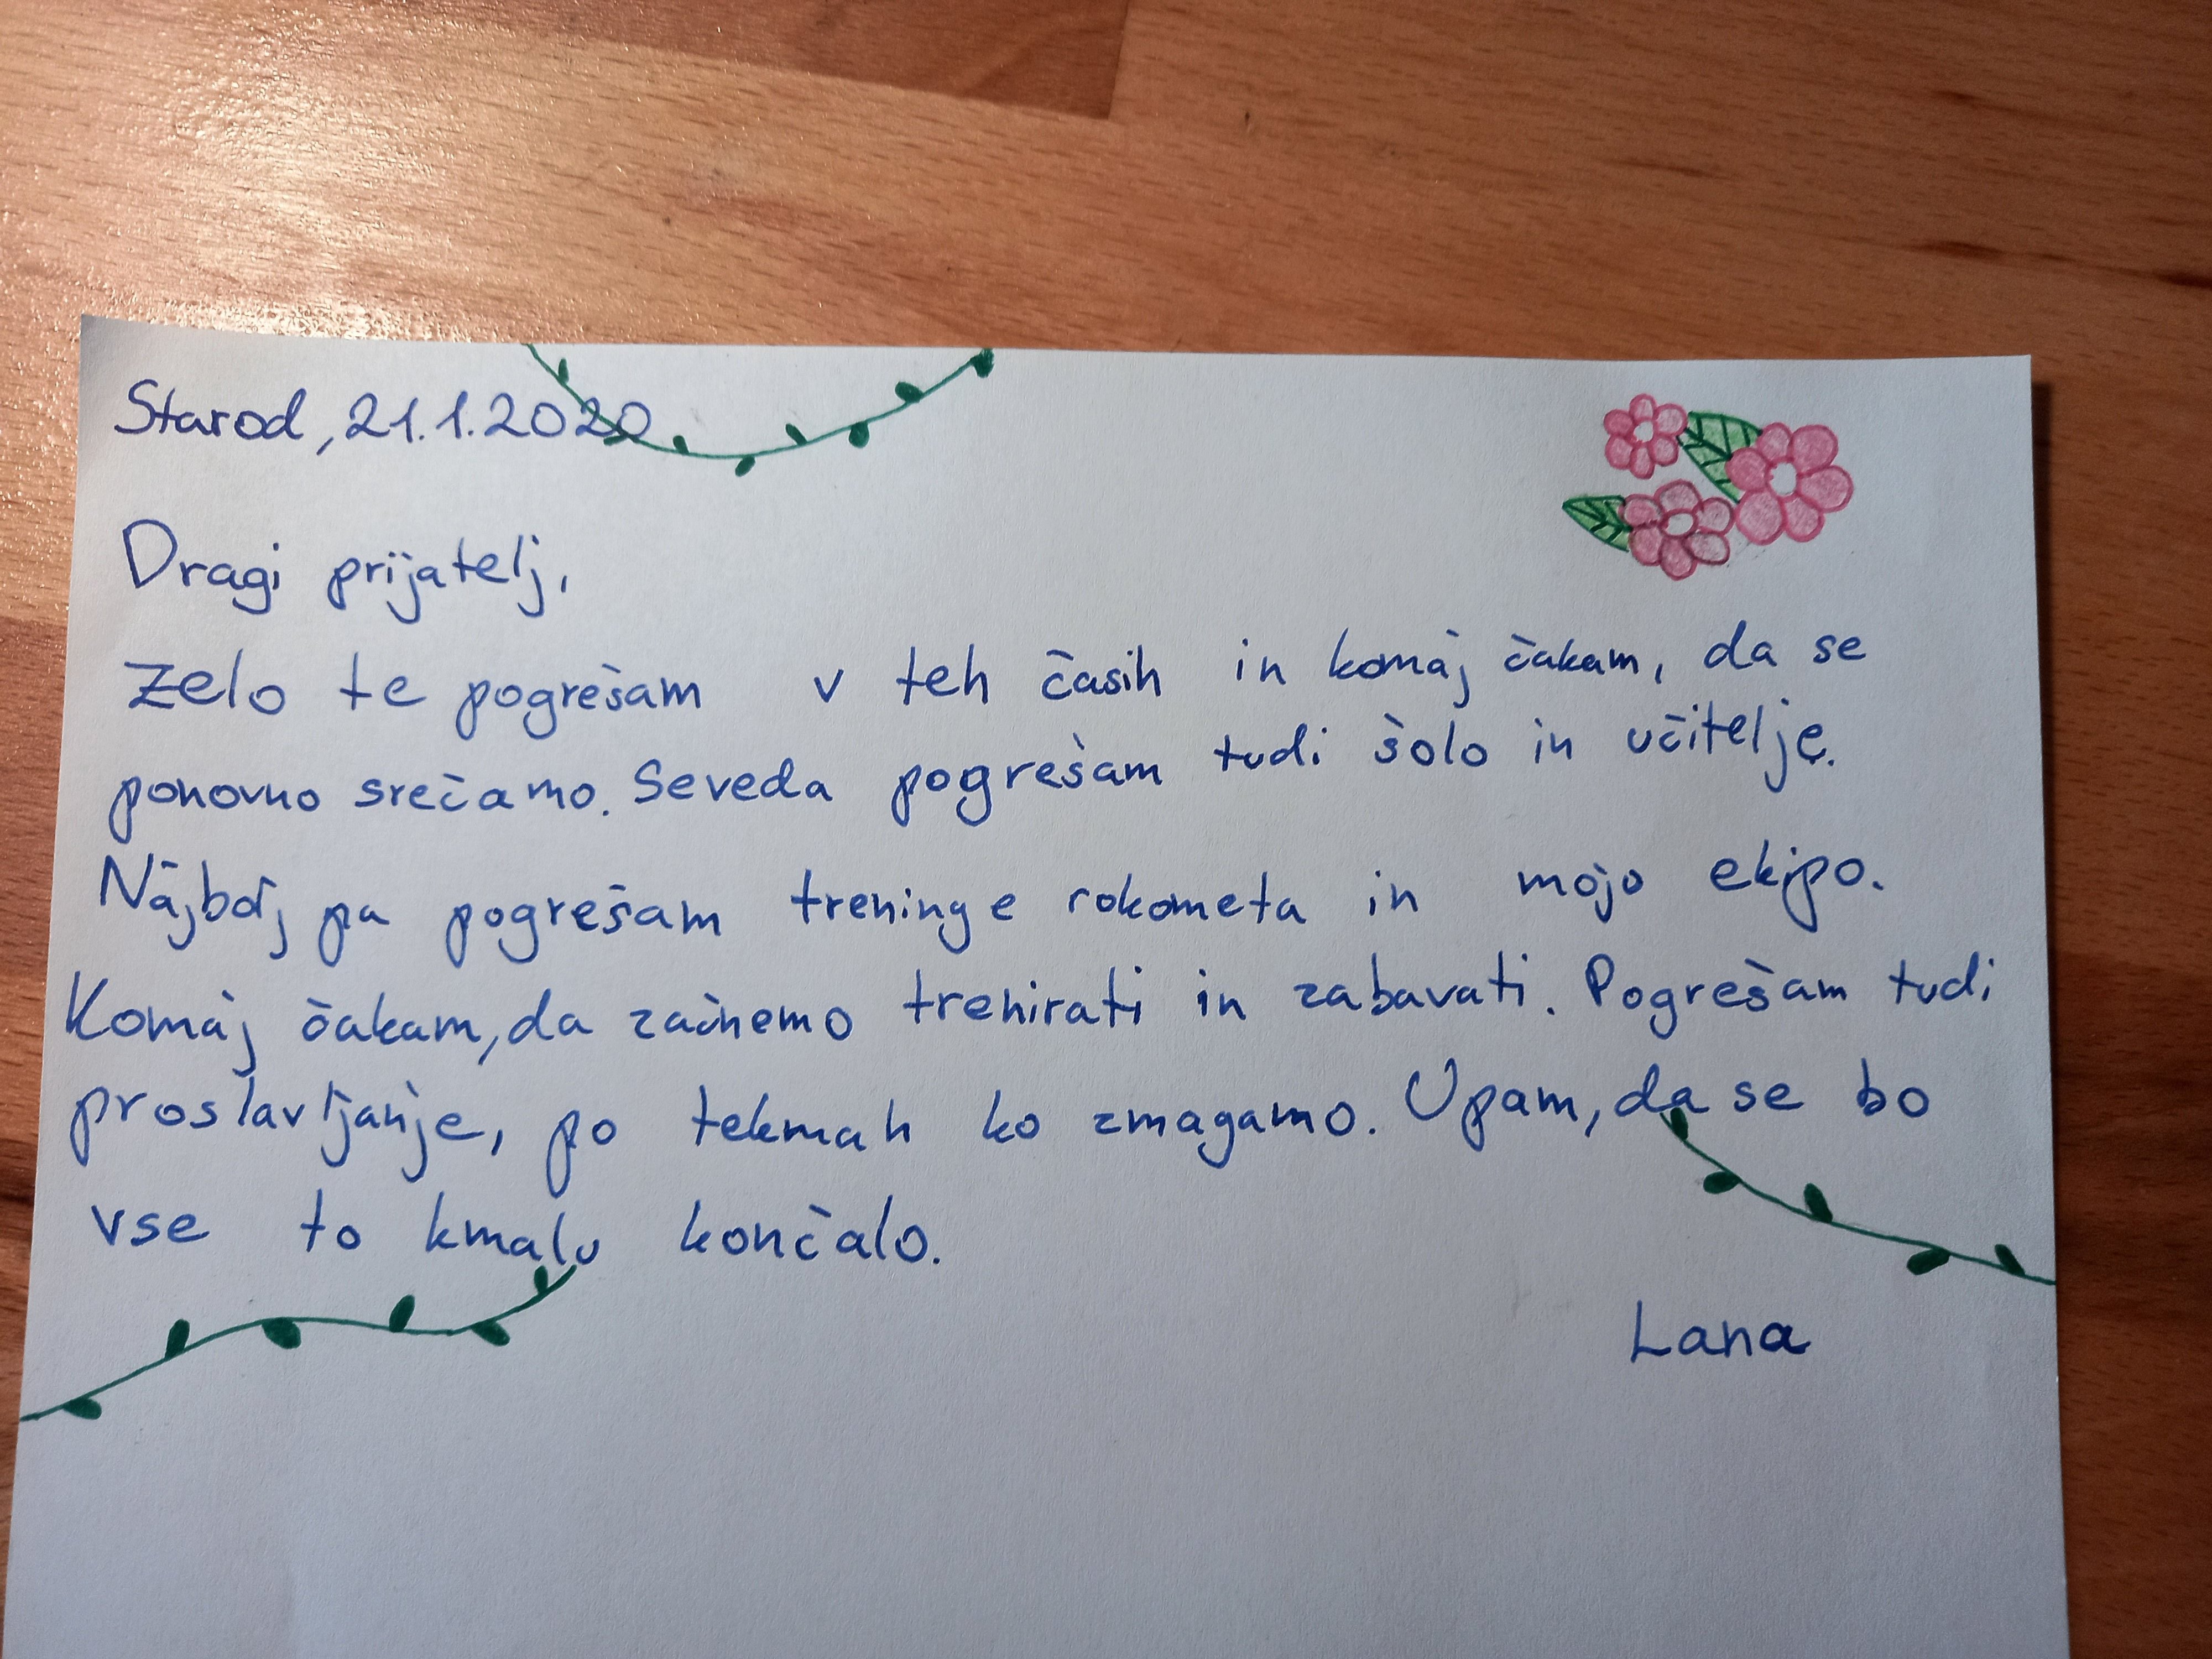 Starod, 21.1.2020
Dragi prijatelj,
zelo te pogrešam v teh časih in komaj čakam, da se
ponovno srečamo. Seveda pogrešam tudi šolo in učitelje.
Najbolj pa pogrešam treninge rokometa in mojo ekipo.
Komaj čakam, da začnemo trenirati in zabavati. Pogrešam tudi
proslavljanje, po tekmah ko zmagamo. Upam, da se bo
vse to kmalu končalo.
Lana